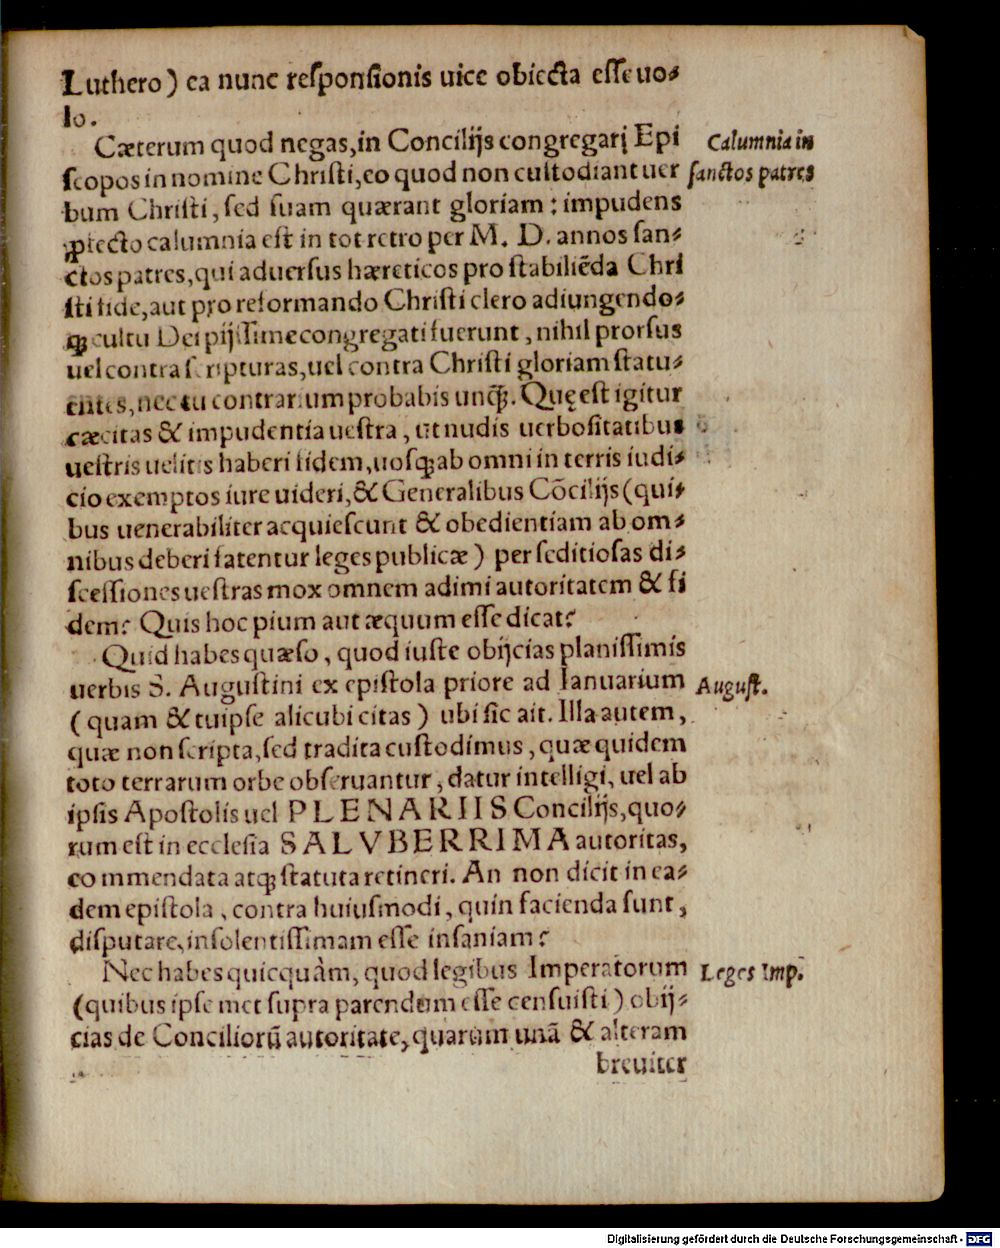 Luthero) ea nunc responsionis uice obiecta esse uo⸗
lo.
Cæterum quod negas, in Concilijs congregari Epi
scopos in nomine Christi, eo quod non custodiant uer
bum Christi, sed suam quærant gloriam: impudens
ꝓfecto calumnia est in tot retro per M. D. annos san⸗
ctos patres, qui aduersus hæreticos pro stabiliẽda Chri
sti fide, aut pro reformando Christi clero adiungendo⸗
qꝫ cultu Dei pijssime congregati fuerunt, nihil prorsus
uel contra scripturas, uel contra Christi gloriam statu⸗
entes, nec tu contrarium probabis unq̃. Quę est igitur
cæcitas & impudentia uestra, ut nudis uerbositatibus
uestris uelitis haberi fidem, uosqꝫ ab omni in terris iudi⸗
cio exemptos iure uideri, & Generalibus Cõcilijs (qui⸗
bus uenerabiliter acquiescunt & obedientiam ab om⸗
nibus deberi fatentur leges publicæ) per seditiosas di⸗
scessiones uestras mox omnem adimi autoritatem & fi
dem? Quis hoc pium aut æquum esse dicat?
Quid habes quæso, quod iuste obijcias planissimis
uerbis S. Augustini ex epistola priore ad Ianuarium
(quam & tuipse alicubi citas) ubi sic ait. Illa autem,
quæ non scripta, sed tradita custodimus, quæ quidem
toto terrarum orbe obseruantur, datur intelligi, uel ab
ipsis Apostolis uel PLENARIIS Concilijs, quo⸗
rum est in ecclesia SALVBERRIMA autoritas,
commendata atqꝫ statuta retineri. An non dicit in ea⸗
dem epistola, contra huiusmodi, quin facienda sunt,
disputare, insolentissimam esse insaniam?
Nec habes quicquàm, quod legibus Imperatorum
(quibus ipsemet supra parendum esse censuisti) obij⸗
cias de Conciliorũ autoritate, quarum unã & alteram
breuiter
Calumnia in
sanctos patres
August.
Leges Imp.
Digitalisierung gefördert durch die Deutsche Forschungsgemeinschaft - DFG